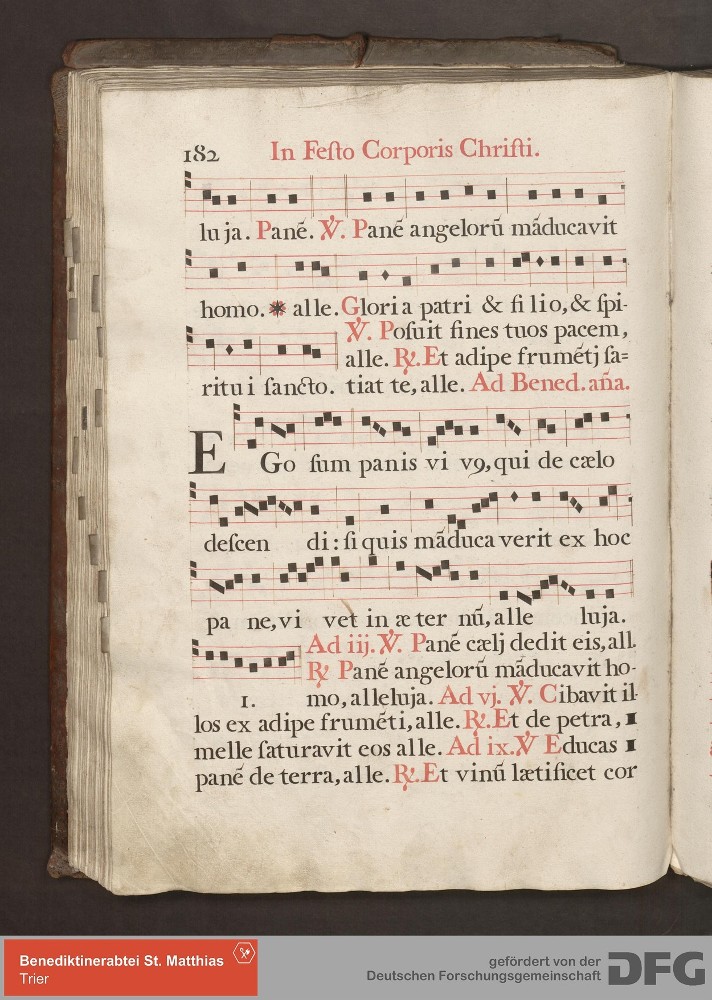 182 In Feſto Corporis Chriſti.
luja. Panē. ℣. Panē angelorū māducavit
homo. ✵ alle. Gloria patri & filio, & ſpi-
℣. Poſuit fines tuos pacem,
alle. ℟. Et adipe frumētj ſa=
ritui ſancto. tiat te, alle. Ad Bened. aña.
EGo ſum panis vi v9, qui de cælo
deſcen di: ſi quis māducaverit ex hoc
pa ne, vi vet in æter nū, alle luja.
Ad iij. ℣. Panē cælj dedit eis, all.
℟ Panē angelorū māducavit ho-
1. mo, alleluja. Ad vj. ℣. Cibavit il-
los ex adipe frumēti, alle. ℟. Et de petra,
melle ſaturavit eos alle. Ad ix. ℣ Educas
panē de terra, alle. ℟. Et vinū lætificet cor
Benediktinerabtei St. Matthias
Trier
gefördert von der
Deutschen Forschungsgemeinschaft DFG